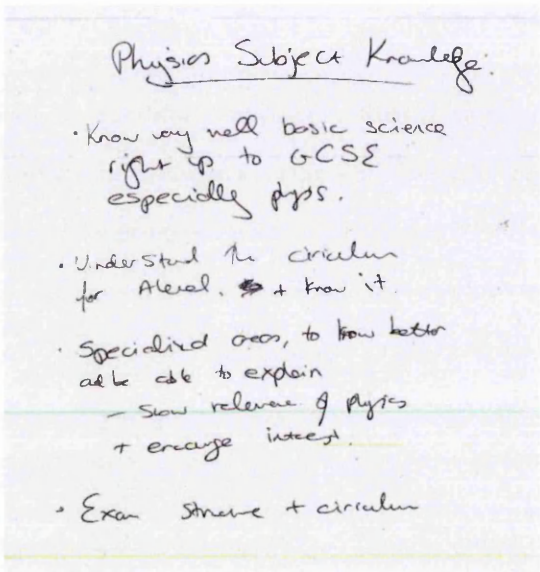 Physics Subject Knowledge.
• Know very well basic science
right up to GCSE
especially physs.
• Understand the ciriculum
for Alevel. + know it
• Specialized areas, to know better
and be able to explain
– Show relevence of physics
+ encourage interest.
• Exam structure + circiculum